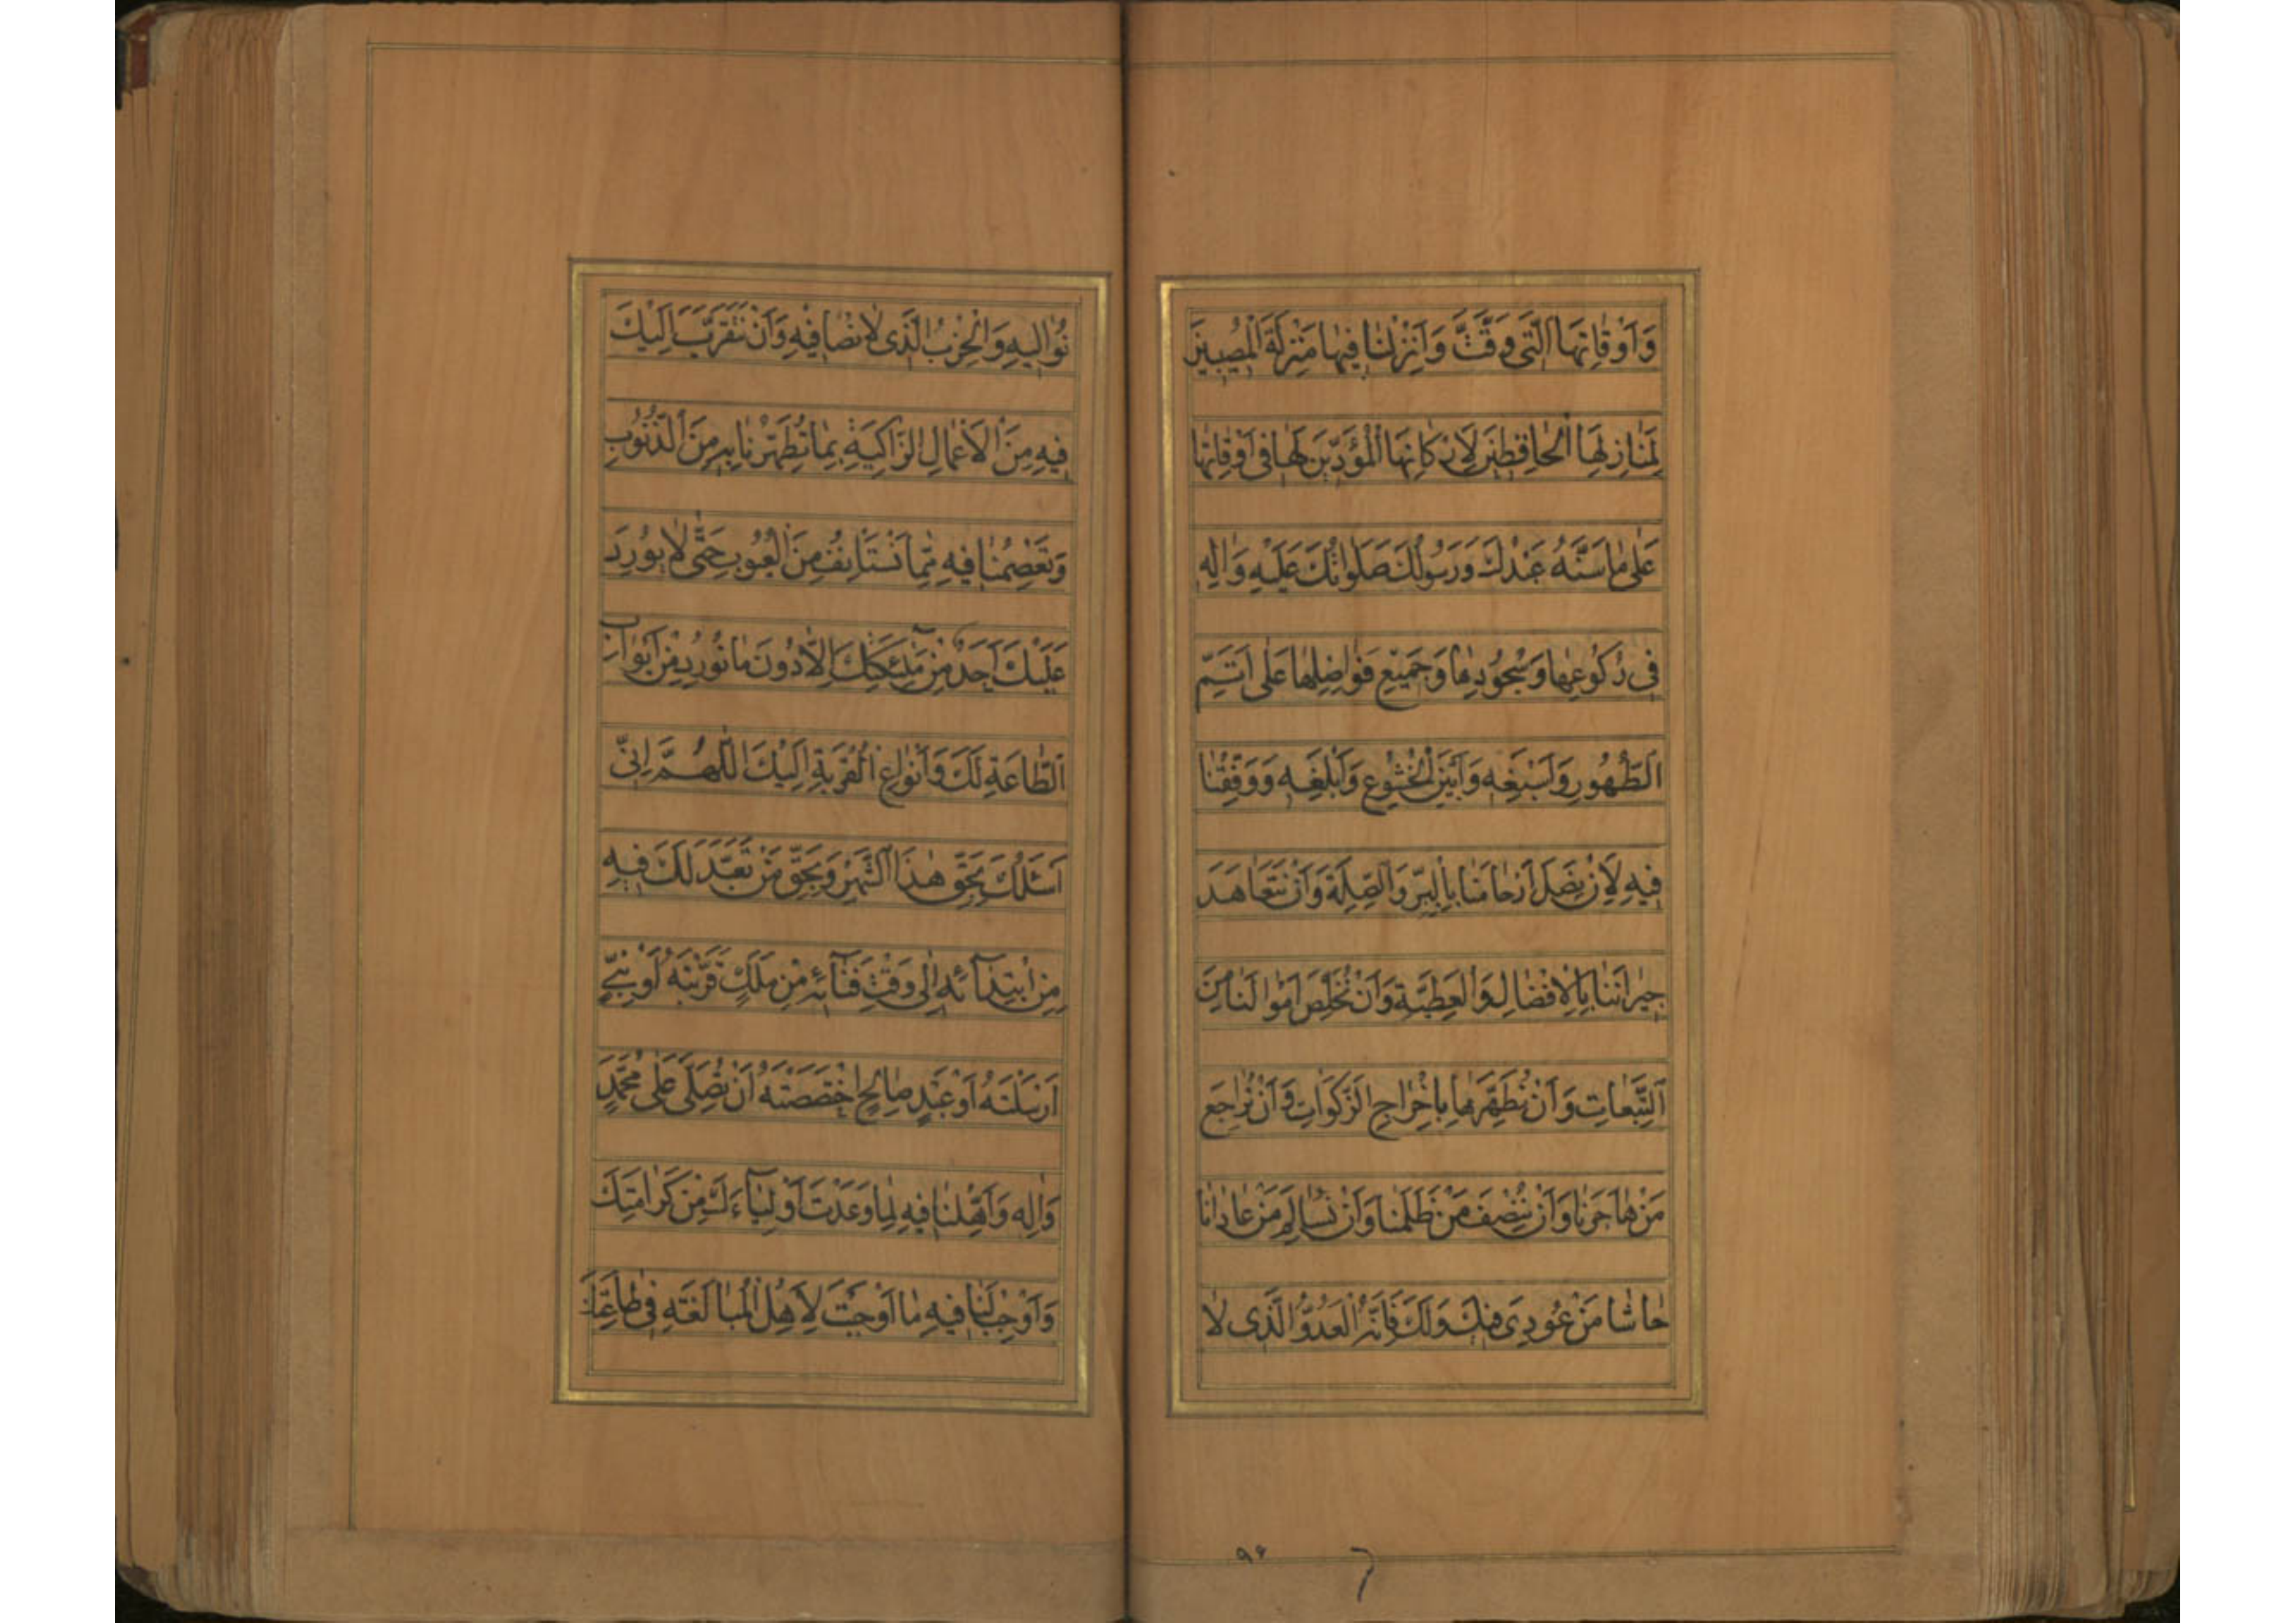 وَاَوْقَاتِهَا الَّتِی وَقَّتَّ وَاَنْزِلْنَا فِيهَا مَنْزِلَةَ الْمُصِيبِينَ
لِمَنَازِلِهَا الْحَافِظِينَ لِاَرْكَانِهَا الْمُؤَدِّينَ لَهَا فِی اَوْقَاتِهَا
عَلٰی مَا سَنَّهُ عَبْدُكَ وَرَسُولُكَ صَلَوَاتُكَ عَلَيْهِ وَاٰلِهِ
فِی رُكُوعِهَا وَسُجُودِهَا وَجَمِيعِ فَوَاضِلِهَا عَلٰی اَتَمِّ
الطَّهُورِ وَاَسْبَغِهِ وَاَبْيَنِ الْخُشُوعِ وَاَبْلَغِهِ وَوَفِّقْنَا
فِيهِ لِاَنْ نَصِلَ اَرْحَامَنَا بِالْبِرِّ وَالصِّلَةِ وَاَنْ نَتَعَاهَدَ
جِيرَانَنَا بِالْاِفْضَالِ وَالْعَطِيَّةِ وَاَنْ نُخَلِّصَ اَمْوَالَنَا مِنَ
التَّبِعَاتِ وَاَنْ نُطَهِّرَهَا بِاِخْرَاجِ الزَّكَوَاتِ وَاَنْ نُرَاجِعَ
مَنْ هَاجَرَنَا وَاَنْ نُنْصِفَ مَنْ ظَلَمَنَا وَاَنْ نُسَالِمَ مَنْ عَادَانَا
حَاشَا مَنْ عُودِیَ فِيكَ وَلَكَ فَاِنَّهُ الْعَدُوُّ الَّذِی لَا
نُوَالِيهِ وَالْحِزْبُ الَّذِی لَا نُصَافِيهِ وَاَنْ نَتَقَرَّبَ اِلَيْكَ
فِيهِ مِنَ الْاَعْمَالِ الزَّاكِيَةِ بِمَا تُطَهِّرُنَا بِهِ مِنَ الذُّنُوبِ
وَتَعْصِمُنَا فِيهِ مِمَّا نَسْتَأْنِفُ مِنَ الْعُيُوبِ حَتّٰی لَا يُورِدَ
عَلَيْكَ اَحَدٌ مِنْ مَلٰٓئِكَتِكَ اِلَّا دُونَ مَا نُورِدُ مِنْ اَبْوَابِ
الطَّاعَةِ لَكَ وَاَنْوَاعِ الْقُرْبَةِ اِلَيْكَ اللّٰهُمَّ اِنِّی
اَسْئَلُكَ بِحَقِّ هٰذَا الشَّهْرِ وَبِحَقِّ مَنْ تَعَبَّدَ لَكَ فِيهِ
مِنِ ابْتِدَآئِهِ اِلٰی وَقْتِ فَنَآئِهِ مِنْ مَلَكٍ قَرَّبْتَهُ اَوْ نَبِیٍّ
اَرْسَلْتَهُ اَوْ عَبْدٍ صَالِحٍ اخْتَصَصْتَهُ اَنْ تُصَلِّیَ عَلٰی مُحَمَّدٍ
وَاٰلِهِ وَاَهِّلْنَا فِيهِ لِمَا وَعَدْتَ اَوْلِيَآءَكَ مِنْ كَرَامَتِكَ
وَاَوْجِبْ لَنَا فِيهِ مَا اَوْجَبْتَ لِاَهْلِ الْمُبَالَغَةِ فِی طَاعَتِكَ